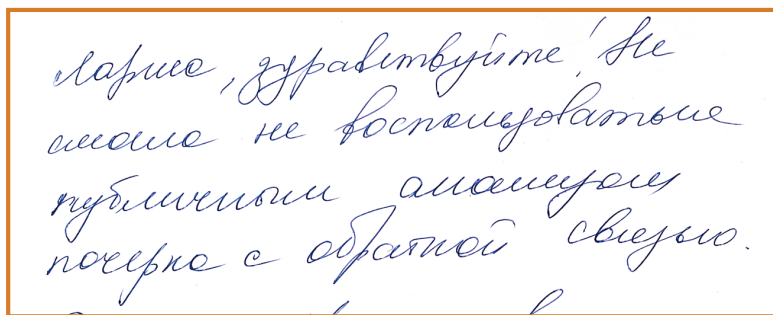 Лариса, здравствуйте! Не
смогла не воспользоваться
публичным анализом
почерка с обратной связью.